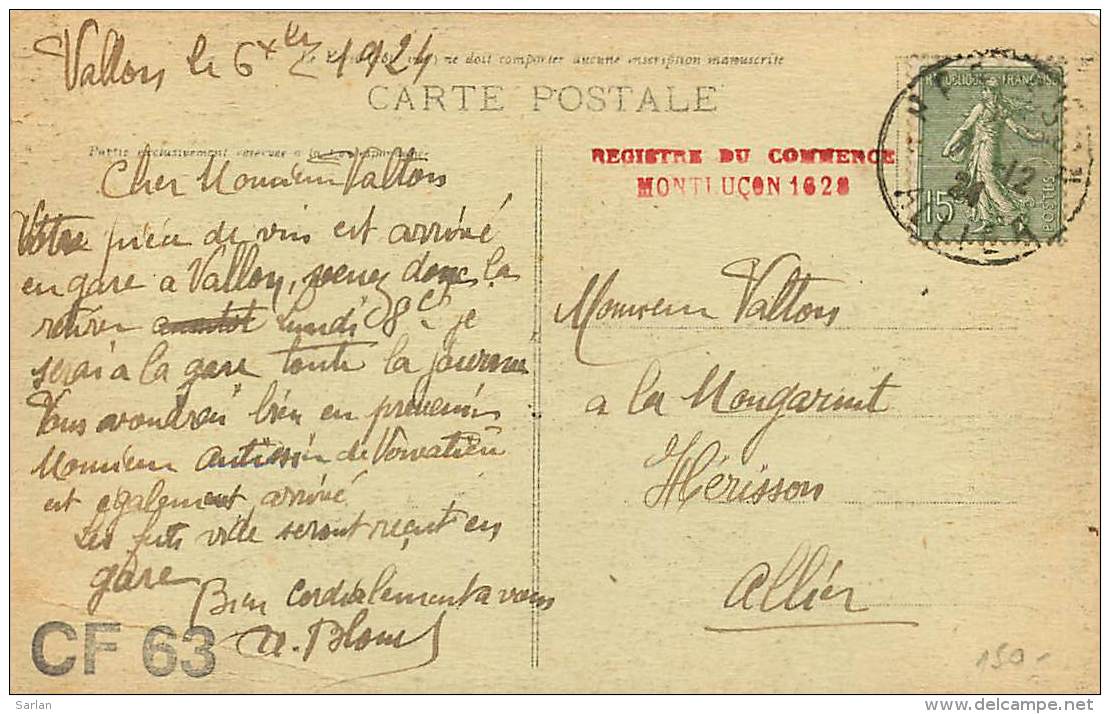 Vallon le 6 Xbre 1924
ne doit comporter aucune inscription manuscrite
CARTE POSTALE
Partie exclusivement réservée à la correspondance.
REGISTRE DU COMMERCE
MONTLUÇON 1628
REPUBLIQUE FRANÇAISE
15
POSTES
12
24
ALLIER
Cher Monsieur Valtors
Votre pièce de vin est arrivé
en gare a Vallon, venez donc la
retirer Lundi 8 ct je
serai a la gare toute la journee
Vous voudrai bien en prévenir
Monsieur de
est egalement arrivé
Les futs vide seront reçut en
gare
Bien Cordialement a vous
A. Blond
Monsieur Valtors
a la
Hérisson
Allier
CF 63
150-
Sarlan
delcampe.net